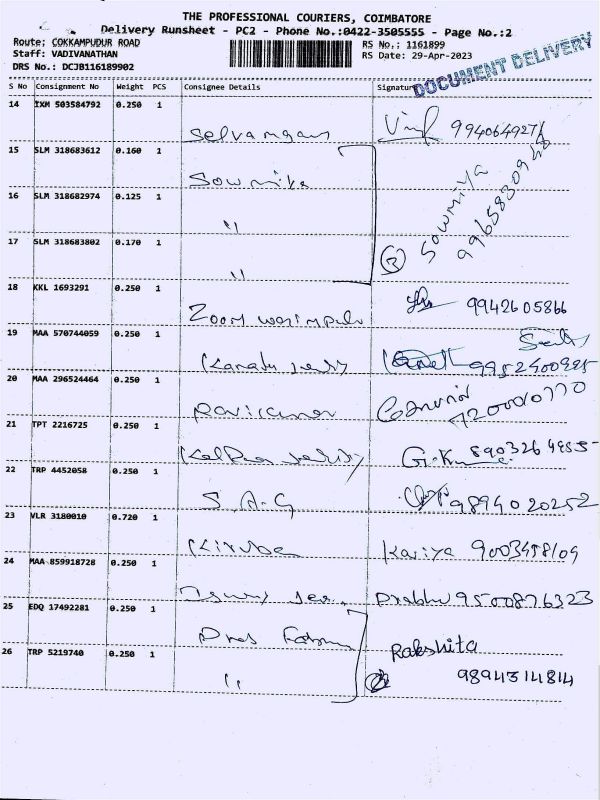 THE PROFESSIONAL COURIERS, COIMBATORE
Delivery Runsheet - PC2 - Phone No.:0422-3505555 - Page No.:2
Route: COKKAMPUDUR ROAD
RS No.: 1161899
Staff: VADIVANATHAN
RS Date: 29-Apr-2023
DRS No.: DCJB116189902
DOCUMENT DELIVERY
S No Consignment No Weight PCS Consignee Details Signature
14 IXM 503584792 0.250 1
15 SLM 318683612 0.160 1
Sowmika
16 SLM 318682974 0.125 1
"
17 SLM 318683802 0.170 1
"
3 Sowmiya
9965830948
18 KKL 1693291 0.250 1
Zoom 9942605866
19 MAA 570744059 0.250 1
9952400925
20 MAA 296524464 0.250 1
Ravikumar
21 TPT 2216725 0.250 1
G.Kum
22 TRP 4452058 0.250 1
S.A.G 9894020252
23 VLR 3180010 0.720 1
Kiruba Kaviya
24 MAA 859918728 0.250 1
Prabhu 9500876323
25 EDQ 17492281 0.250 1
Rakshita
26 TRP 5219740 0.250 1
" 9894314814